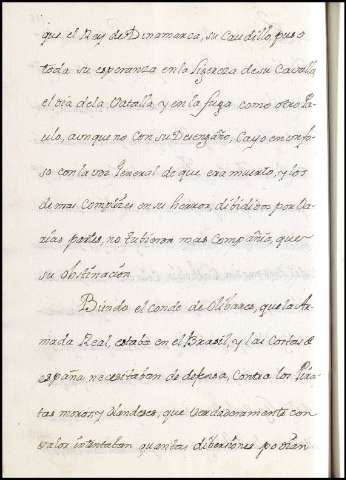 que el Rey de Dinamarca, su Caudillo, puso
toda su esperanza en la ligereza de su Cavallo
el dia de la Vatalla, y en la fuga como otro Pa-
ulo, aunque no con su Desengaño, Cayo en
so con la voz General de que era muerto, y los
demas Complizes en su horror, dibididos por Va-
rias partes, no tubieron mas Compañia, que
su obstinación
Biendo el conde de Olibares, que la Ar-
mada Real, estaba en el Brasil, y las Costas de
españa necesitaban de defensa, Contra los Pira-
tas moros y olandeses, que Verdaderamente con
valor intentaban quantas dibersiones podian